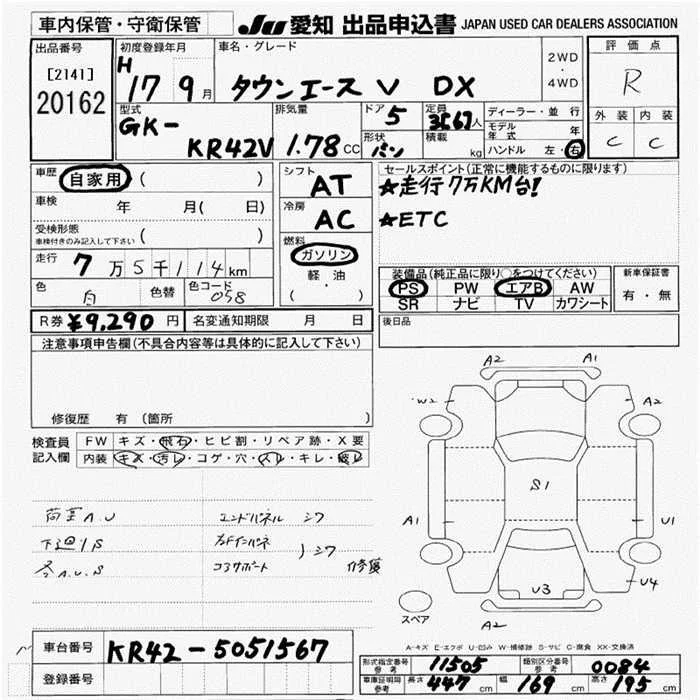 車内保管・守衛保管
JU 愛知 出品申込書 JAPAN USED CAR DEALERS ASSOCIATION
出品番号
[2141]
20162
初度登録年月
H 17 9月
車名・グレード
タウンエース V DX
2WD
・
4WD
評価点
R
外装 内装
C C
型式
GK-
KR42V
排気量
1.78CC
ドア 5
形状 バン
定員
人
積載
kg
ディーラー・並行
モデル年式 年
ハンドル 左・右
車歴 自家用 ( )
車検 年 月( 日)
受検形態
車検付きのみ記入して下さい ( )
走行 7万5千114km
色 白 色替 色コード 058
シフト
AT
冷房
AC
燃料
ガソリン
軽・油
( ・ )
セールスポイント(正常に機能するものに限ります)
★走行7万KM台!
★ETC
装備品(純正品に限り○をつけてください)
PS PW エアB AW
SR ナビ TV カワシート
新車保証書
有・無
R券 ¥9,290円 名変通知期限 月 日
後日品
注意事項申告欄(不具合内容等は具体的に記入して下さい)
修復歴 有 (箇所 )
検査員
記入欄
FW キズ・飛石・ヒビ割・リペア跡・X要
内装 キズ・汚レ・コゲ・穴・スレ・キレ・破レ
荷室A.U エンドパネル シワ
下廻りS
各A.U.S コアサポート 修復
シワ
A2 A1
W2 A2
A1 S1 U1
V3 U4
A2
スペア
A-キズ E-エクボ U-凹み W-補修跡 S-サビ C-腐食 XX-交換済
車台番号 KR42-5051567
登録番号
形式指定番号 参考 11505 類別区分番号 参考 0084
車庫証明用 参考 長さ 447cm 幅 169cm 高さ 195cm